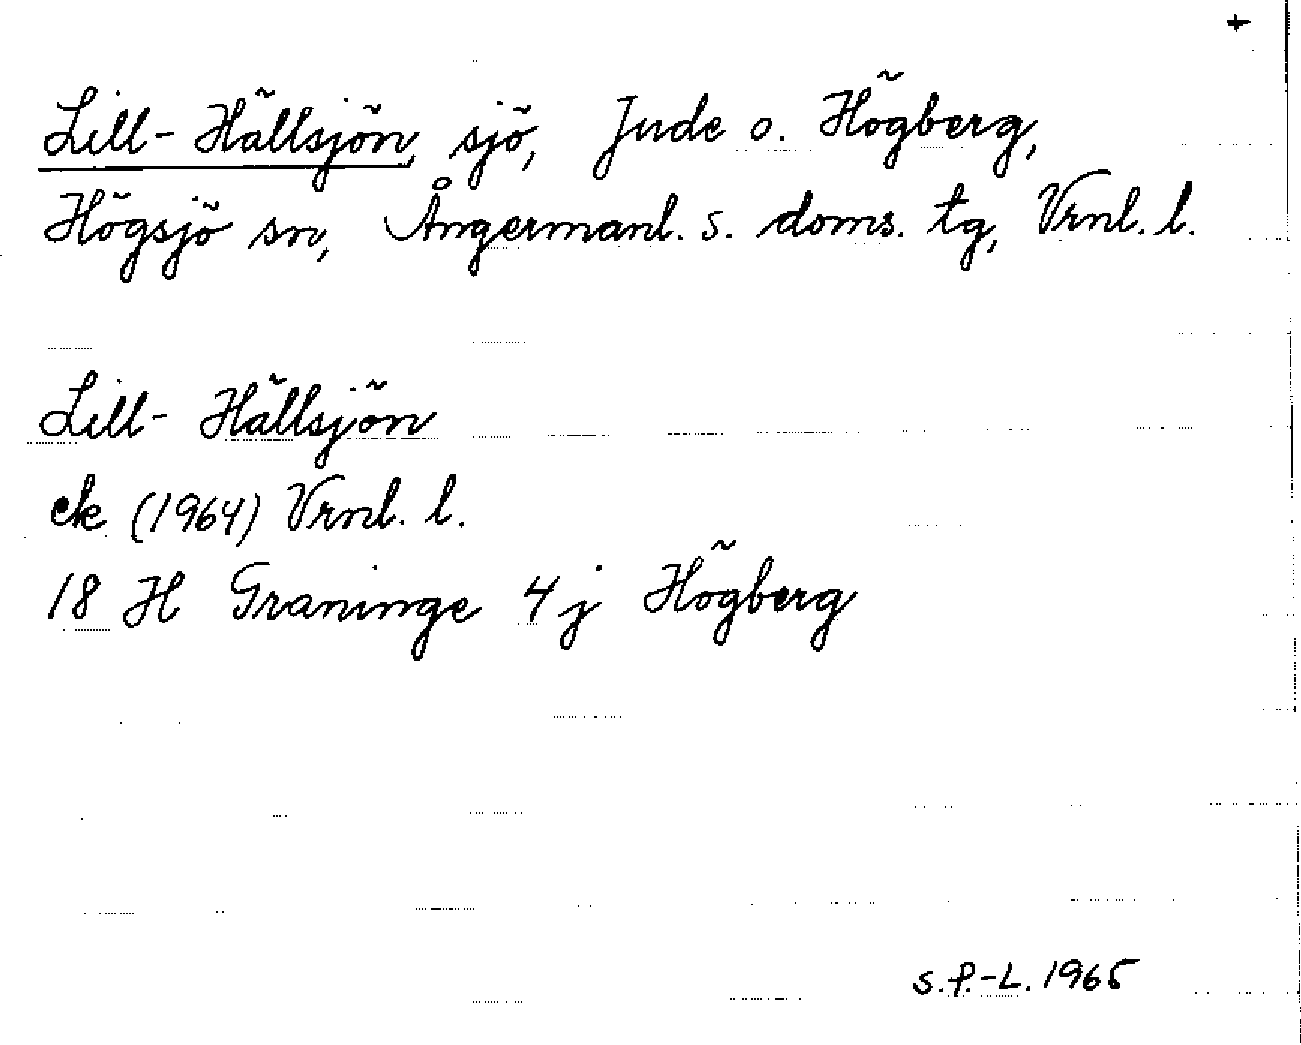 +
Lill-Hällsjön, sjö, Jude o. Högberg,
Högsjö sn, Ångermanl. s. doms. tg, Vrnl. l.
Lill-Hällsjön
ek (1964) Vrnl. l.
18 H Graninge 4 j Högberg
S.P.-L. 1965